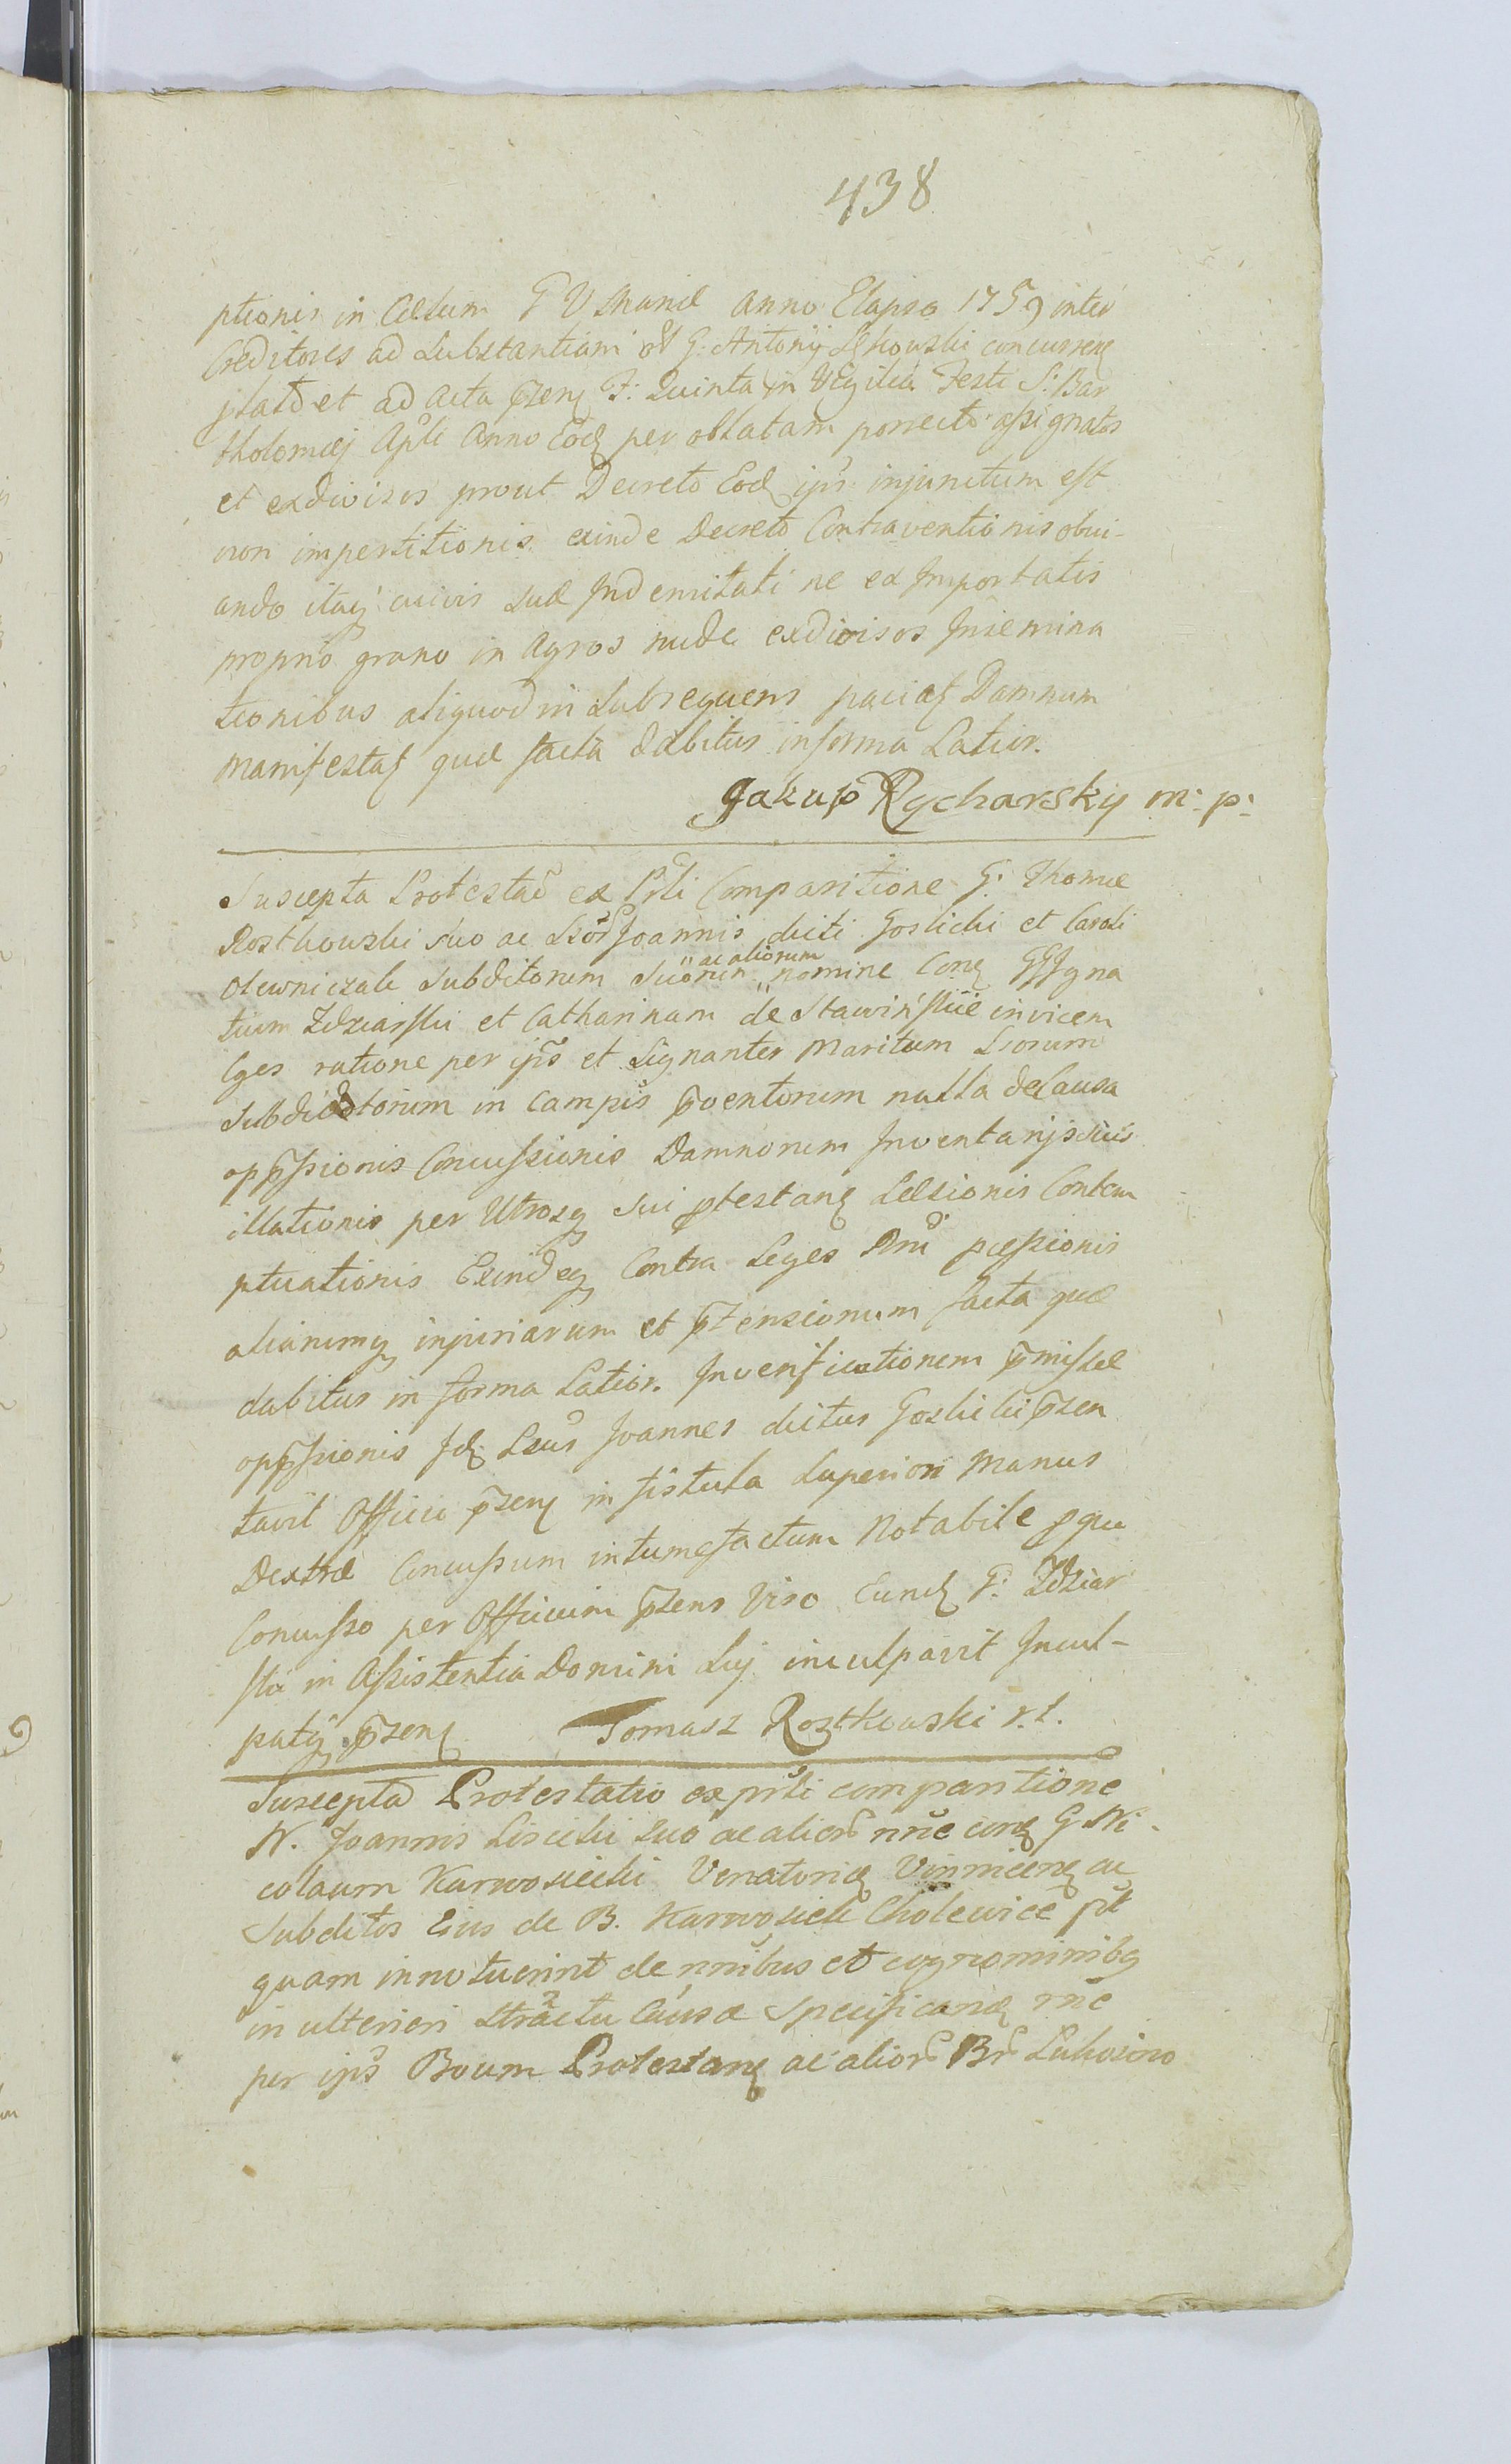 438
ptionis in Actum G V Mand anno Elapso 1759 inter
Creditores ad Substantiam G: Antonij concurren
plato et ad acta przen F: Quinta in Vigilia Festi S: Bar
tholomaej Apli Anno Eod per oblatam porrecto assignatos
et exdivisos prout Decreto Eod ips injunctum est
non impertitionis exinde Decreto Contraventionis obvi-
ando itaq cuivis suae Indemitati ne ex Importatis
proprio grano in Agros nude exdivisos Insemina
tionibus aliquod in subsequens paciat Damnum
Manifestat quae facta dabitur in forma Latior.
Jakup Rycharsky m: p:
Suscepta Protestao ex Psli Comparitione G: Thomae
Rostkowski suo ac Joannis dicti Goslicki et Caroli
Olewniczak Subditorum Suorum ac aliorum nomine Con GG Igna
tium Zdziarski et Catharinam de invicem
Cges ratione per ips et Signanter Maritum Laborum
Subdictorum in Campis pventorum nulla de Causa
oppssionis Concussionis Damnorum Inventarijs suis
illationis per Utrosq sui ptestan Laesionis Contem
ptuationis Exindeq Contra Leges Rni pcessionis
aliarumq injuriarum et prtensionum facta quae
dabitur in forma Latior. Inverificationem pmissae
oppssionis Id Joannes dictus Goslicki przen
tavit Officio przen in fistula Superiori Manus
Dextrae Concussum intumefactum Notabile p quo
Concusso per Officium przens Viso Eund G: Zdziar
ski in Assistentia Domini Suj inculpavit Incul-
patq przen Tomasz Rostkowski
Suscepta Protestatio ex prsli comparitione
N. Joannis Liscicki Suo ac alior nne con G Ni-
colaum Karwosiecki Venatorid Vinnicen ac
Subditos Eius de B. Karwosieki Cholewice pt
quam innotuerint de nnibus et cognominibq
in ulteriori stractu Causae Specificand rne
per ips Boum Protestan ac alior Br Lukosino